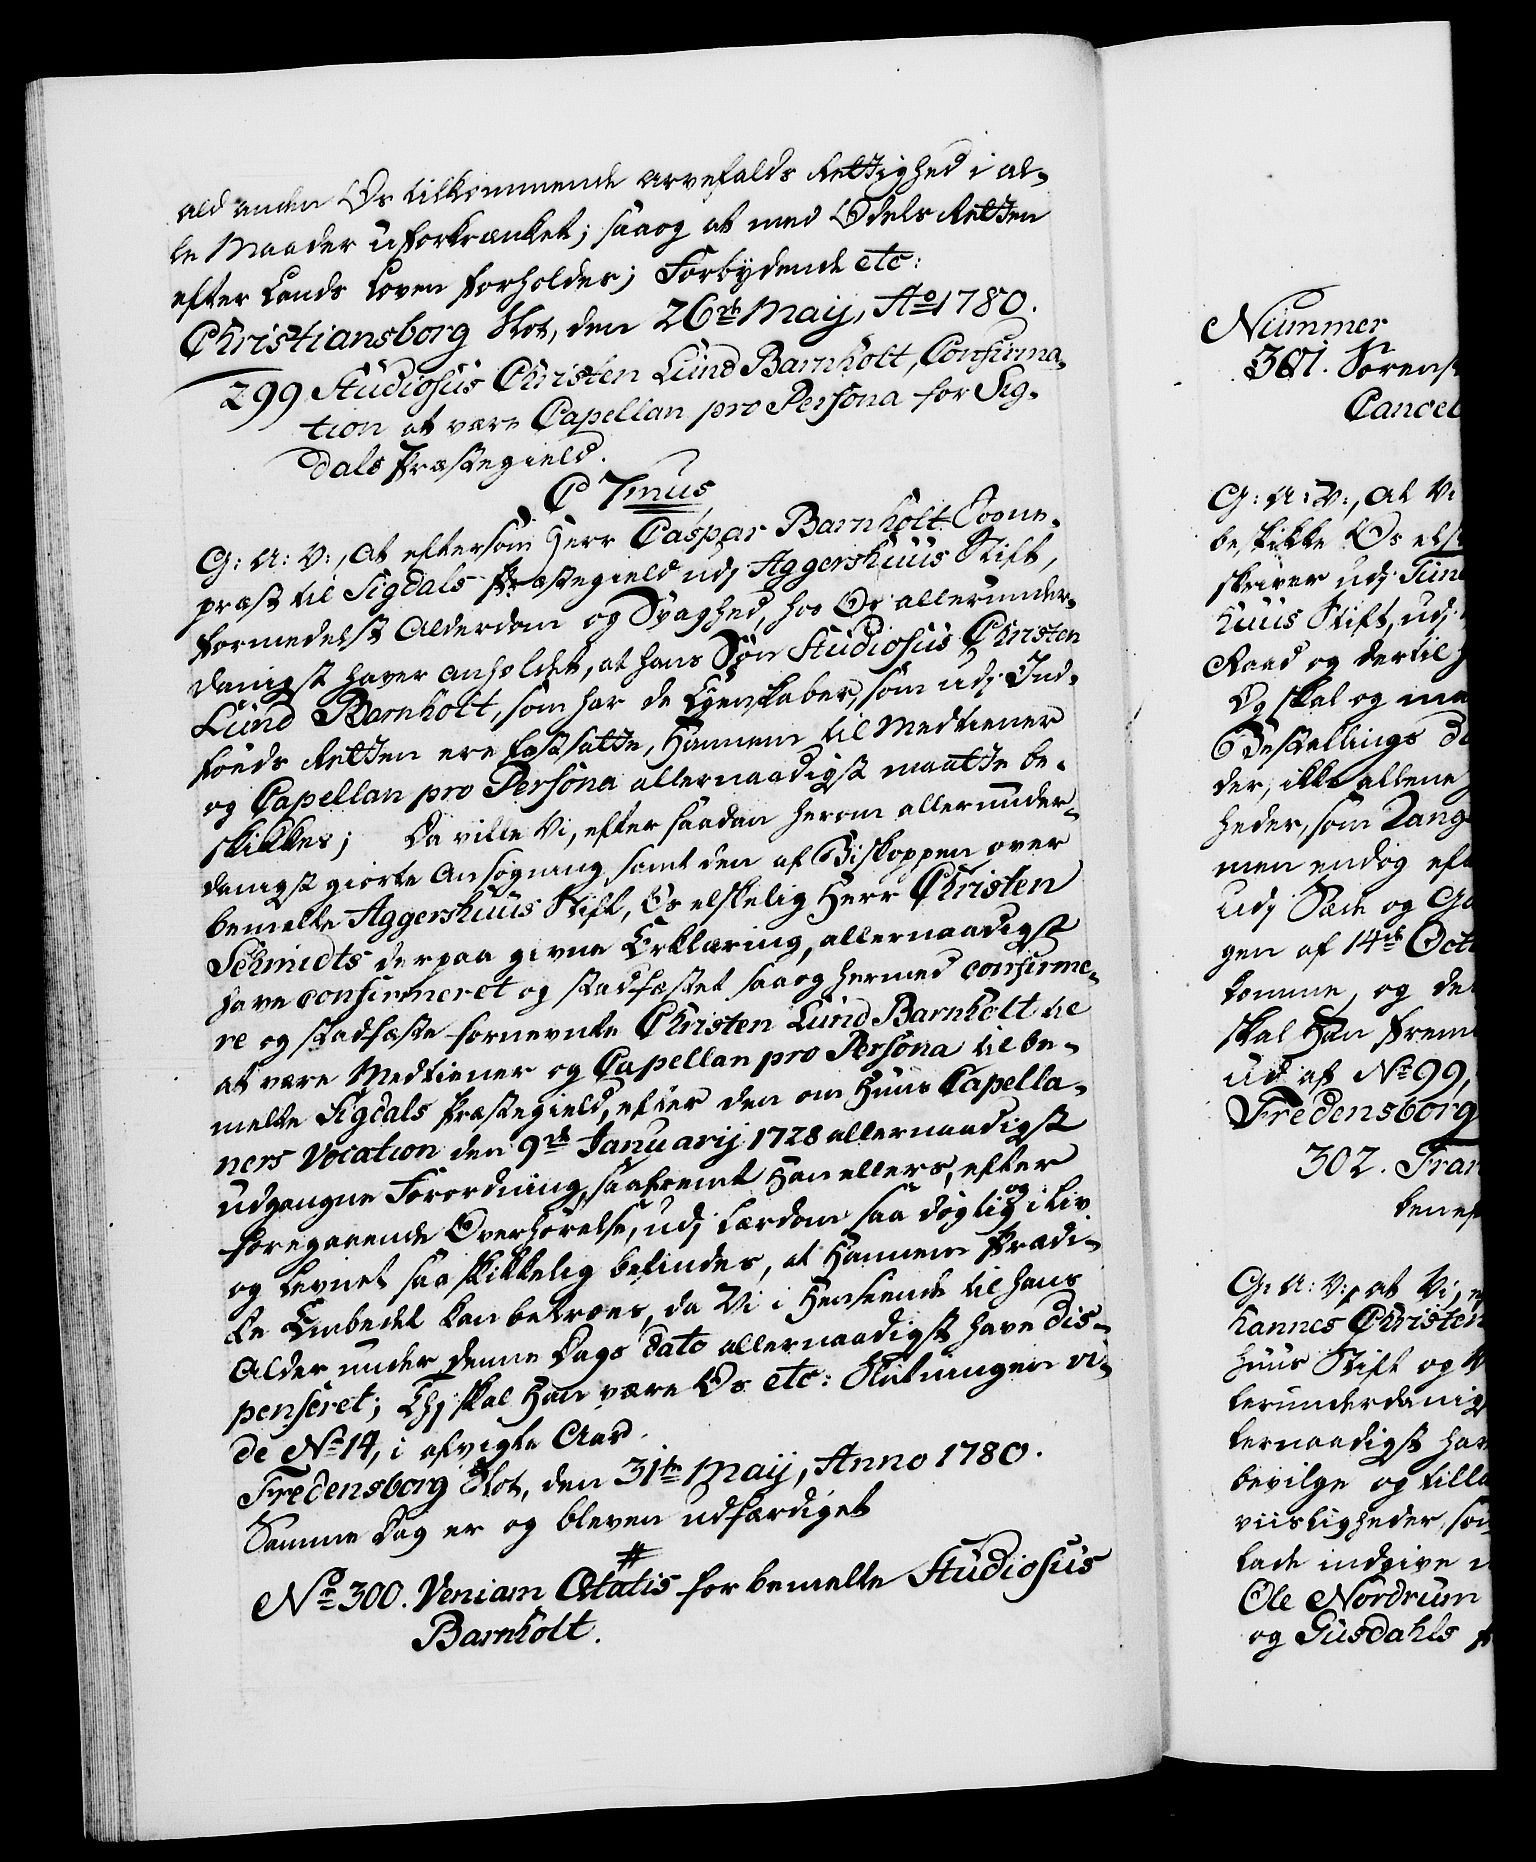 ald anden Os tilkommende Arvefalds Rettighed i al-
le Maader uforkrænket; saaog at med Odels Retten
efter Lands Loven forholdes; Forbydende etc:
Christiansborg Slot, den 26de Maij, Ao 1780.
299 Studiosus Christen Lund Barnholt, Confirma-
tion at være Capellan pro Persona for Sig-
dals Præstegield.
C 7mus
G: A: V:, At eftersom Herr Caspar Barnholt Sogne-
præst til Sigdals Præstegield udj Aggershuus Stift,
formedelst Alderdom og Svaghed, hos Os allerunder-
danigst haver anholdet, at hans Søn Studiosus Christen
Lund Barnholt, som har de Egenskaber, som udj Ind-
føds Retten ere fastsatte, Hannem til Medtiener
og Capellan pro Persona allernaadigst maatte be-
skikkes; Da ville Vi, efter saadan herom allerunder-
danigst giorte Ansøgning samt den af Biskoppen over
bemelte Aggershuus Stift, Os elskelig Herr Christen
Schmidts derpaa givne Erklæring, allernaadigst
have confirmeret og stadfæstet saaog hermed confirme-
re og stadfæste fornevnte Christen Lund Barnholt til
at være Medtiener og Capellan pro Persona til be-
melte Sigdals Præstegield, efter den om Huus Capella-
ners Vocation den 9de Januarij 1728 allernaadigst
udgangne Forordning, saafremt Han ellers, efter
foregaaende Overhørelse, udj Lærdom saa døgtig og i Liv
og Levnet saa skikkelig befindes, at Hannem Prædi-
ke Embedet kan betroes, da Vi i Henseende til hans
Alder under denne Dags Dato allernaadigst have dis-
penseret; Thj skal Han være Os etc: Slutningen vi-
de No 14, i afvigte Aar.
Fredensborg Slot, den 31te Maij, Anno 1780.
Samme Dag er og bleven udfærdiget
#
No 300. Veniam Ætatis for bemelte Studiosus
Barnholt.
Nummer
301. Sørens
Cancel
G: A: V:, At Vi
beskikke Os els
skriver udj
huus Stift, udj
Raad og dertil
Og skal og ma
Bestallings
der, ikke allene
heder, som
men endog eft
udj Sæde og
gen af 14de Oct
komme, og de
skal Han frem
ud af No 99,
Fredensborg
302. Fra
G: A: V:, at Vi,
hannes Christen
huus Stift og
lerunderdanig
lernaadigst ha
bevilge og till
viisligheder, so
lade indgive
Ole Nordrum
og Gusdahls